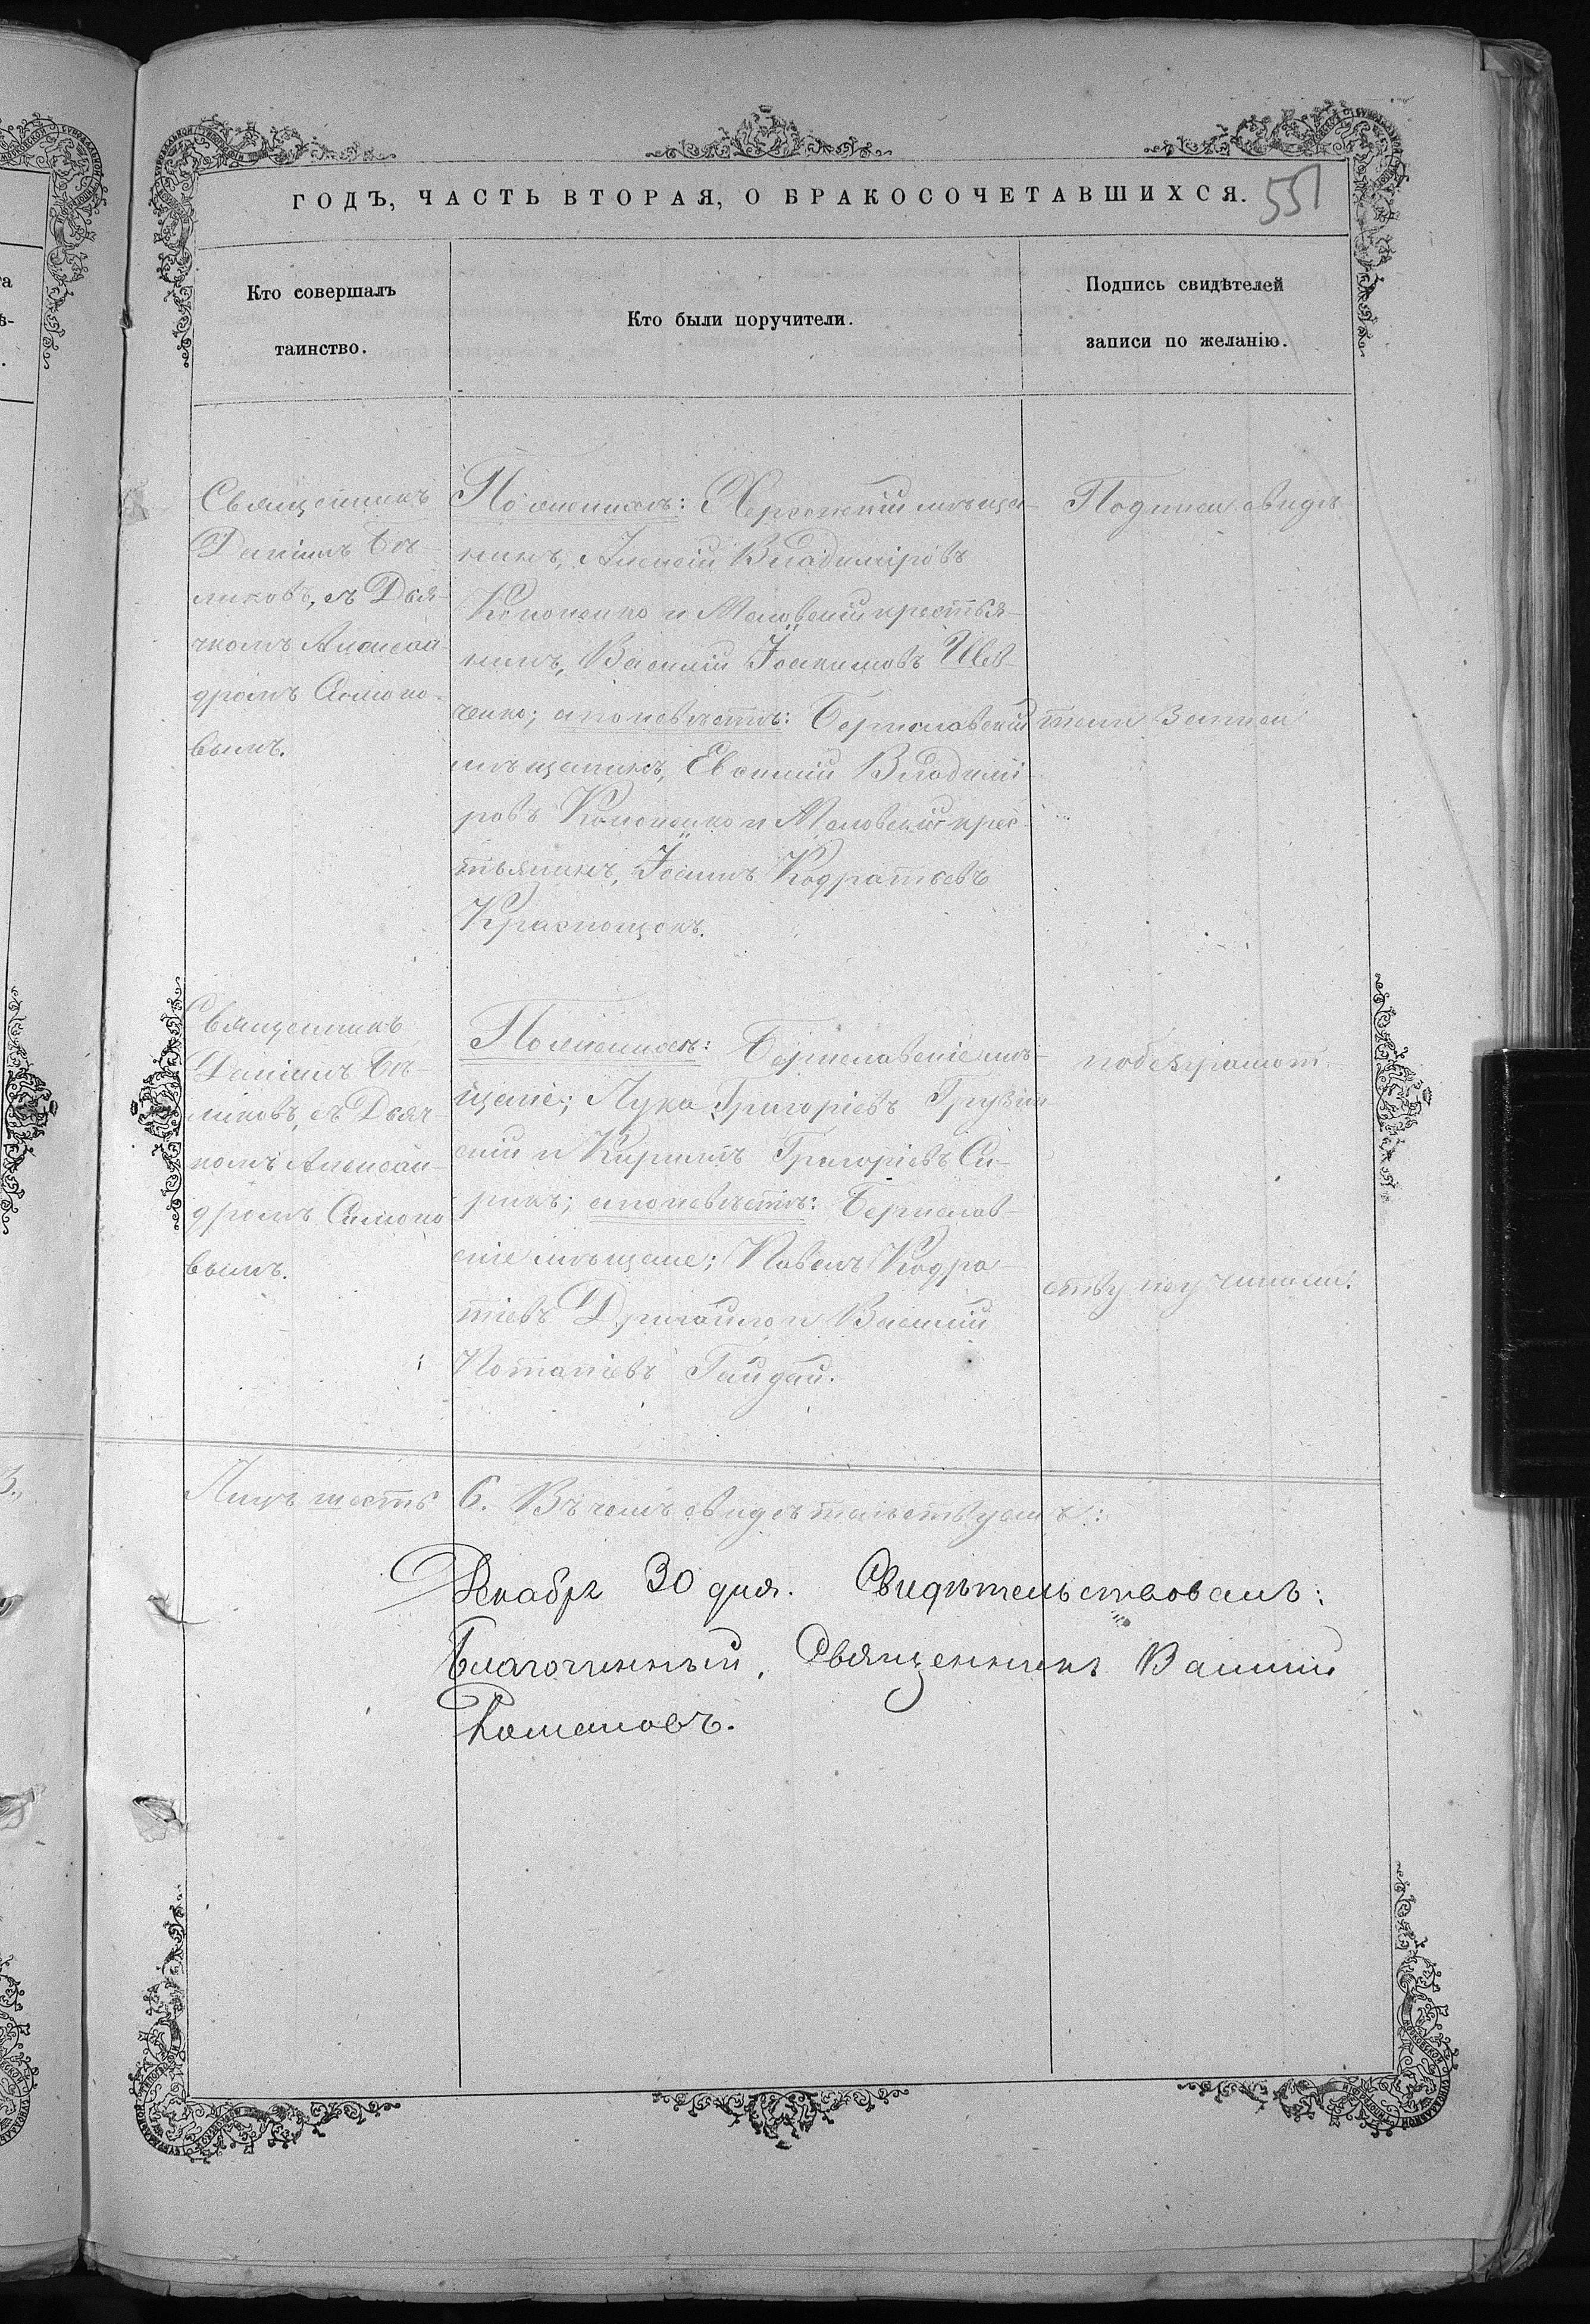 ГОДЪ, ЧАСТЬ ВТОРАЯ, О БРАКОСОЧЕТАВШИХСЯ.
551
Кто совершалъ
таинство.
Кто были поручители.
Подпись свидѣтелей
записи по желанію.
Священникъ
Даніилъ Бѣ-
ликовъ, съ Дья-
чкомъ Алексан-
дромъ Симоно-
вымъ.
По женихѣ: Херсонскій мѣща-
нинъ, Алексій Владиміровъ
Кононенко и Меловскій крестья-
нинъ, Василій Іоакимовъ Шев-
ченко; а по невѣстѣ: Бериславскій
мѣщанинъ, Евсимій Владимі-
ровъ Кононенко и Меловскій крес-
тьянинъ, Іоаннъ Кодратьевъ
Краснощокъ.
Подписи свидѣ-
тели записи
Священникъ
Даніилъ Бѣ-
ликовъ, съ Дьяч-
комъ Алексан-
дромъ Симоно
вымъ.
По женихѣ: Бериславскіе мѣ-
щане; Лука Григоріевъ Грузин
скій и Кириллъ Григоріевъ Си-
рикъ; а по невѣстѣ: Берислав-
скіе мѣщане; Павелъ Кодра-
тіевъ Дригайло и Василій
Потапіевъ Гайдай.
по безграмот-
ству не учинили.
Лицъ шесть 6. Въ чемъ свидѣтельствуемъ:
Декабря 30 дня. Свидѣтельствовалъ:
Благочинный, Священникъ Василій
Романовъ.